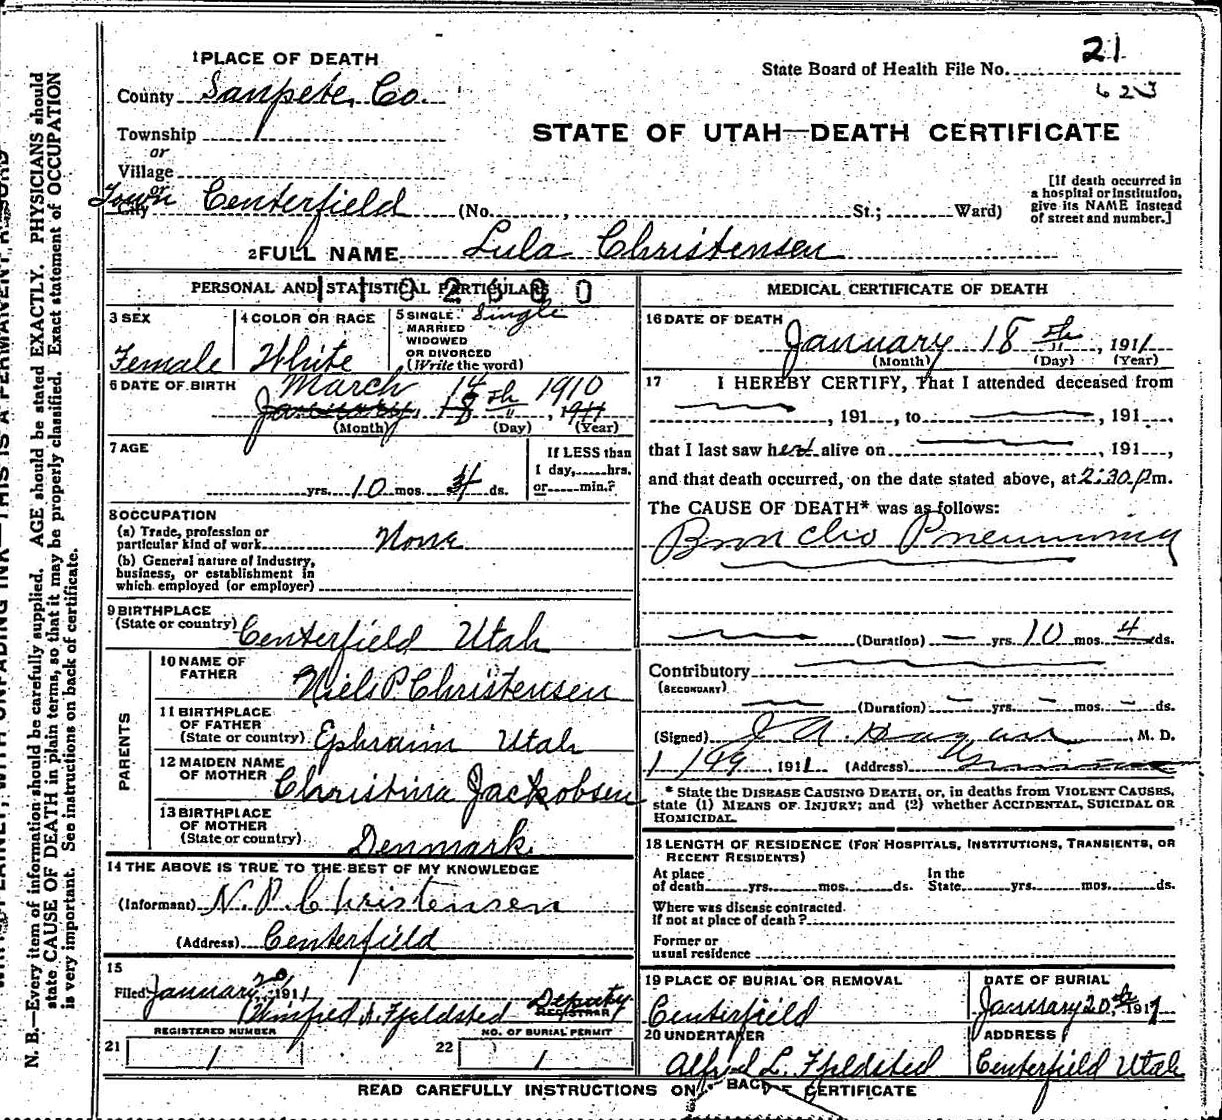 1 PLACE OF DEATH
State Board of Health File No. 21
623
County Sanpete Co.
Township
or
Village
or
Town City Centerfield (No. , St.; Ward)
STATE OF UTAH—DEATH CERTIFICATE
[If death occurred in
a hospital or institution,
give its NAME instead
of street and number.]
2 FULL NAME Lula Christensen
PERSONAL AND STATISTICAL PARTICULARS
3 SEX
Female
4 COLOR OR RACE
White
5 SINGLE Single
MARRIED
WIDOWED
OR DIVORCED
(Write the word)
6 DATE OF BIRTH March 14 th 1910
January 18 th, 1911
(Month) (Day) (Year)
7 AGE
yrs. 10 mos. 4 ds.
If LESS than
1 day, hrs.
or min.?
8 OCCUPATION
(a) Trade, profession or
particular kind of work None
(b) General nature of Industry,
business, or establishment in
which employed (or employer)
9 BIRTHPLACE
(State or country) Centerfield Utah
PARENTS
10 NAME OF
FATHER Niels P Christensen
11 BIRTHPLACE
OF FATHER
(State or country) Ephraim Utah
12 MAIDEN NAME
OF MOTHER Christina Jackobsen
13 BIRTHPLACE
OF MOTHER
(State or country) Denmark
14 THE ABOVE IS TRUE TO THE BEST OF MY KNOWLEDGE
(Informant) N. P. Christensen
(Address) Centerfield
15
Filed January 20, 1911
Fjeldsted Deputy
REGISTRAR
REGISTERED NUMBER NO. OF BURIAL PERMIT
21 1 22 1
MEDICAL CERTIFICATE OF DEATH
16 DATE OF DEATH
January 18 th, 1911
(Month) (Day) (Year)
17 I HEREBY CERTIFY, That I attended deceased from
, 191 , to , 191 ,
that I last saw her alive on , 191 ,
and that death occurred, on the date stated above, at 2:30 p m.
The CAUSE OF DEATH* was as follows:
Broncho Pneumonia
(Duration) — yrs. 10 mos. 4 ds.
Contributory
(SECONDARY)
(Duration) — yrs. — mos. — ds.
(Signed) J A. , M. D.
1/19, 1911 (Address)
* State the DISEASE CAUSING DEATH, or, in deaths from VIOLENT CAUSES,
state (1) MEANS OF INJURY; and (2) whether ACCIDENTAL, SUICIDAL OR
HOMICIDAL.
18 LENGTH OF RESIDENCE (FOR HOSPITALS, INSTITUTIONS, TRANSIENTS, OR
RECENT RESIDENTS)
At place
of death yrs. mos. ds.
In the
State yrs. mos. ds.
Where was disease contracted
if not at place of death?
Former or
usual residence
19 PLACE OF BURIAL OR REMOVAL
Centerfield
DATE OF BURIAL
January 20 th, 1911
20 UNDERTAKER
Alfred L. Fjeldsted
ADDRESS
Centerfield Utah
READ CAREFULLY INSTRUCTIONS ON BACK OF CERTIFICATE
N. B.—Every item of information should be carefully supplied. AGE should be stated EXACTLY. PHYSICIANS should
state CAUSE OF DEATH in plain terms, so that it may be properly classified. Exact statement of OCCUPATION
is very important. See instructions on back of certificate.